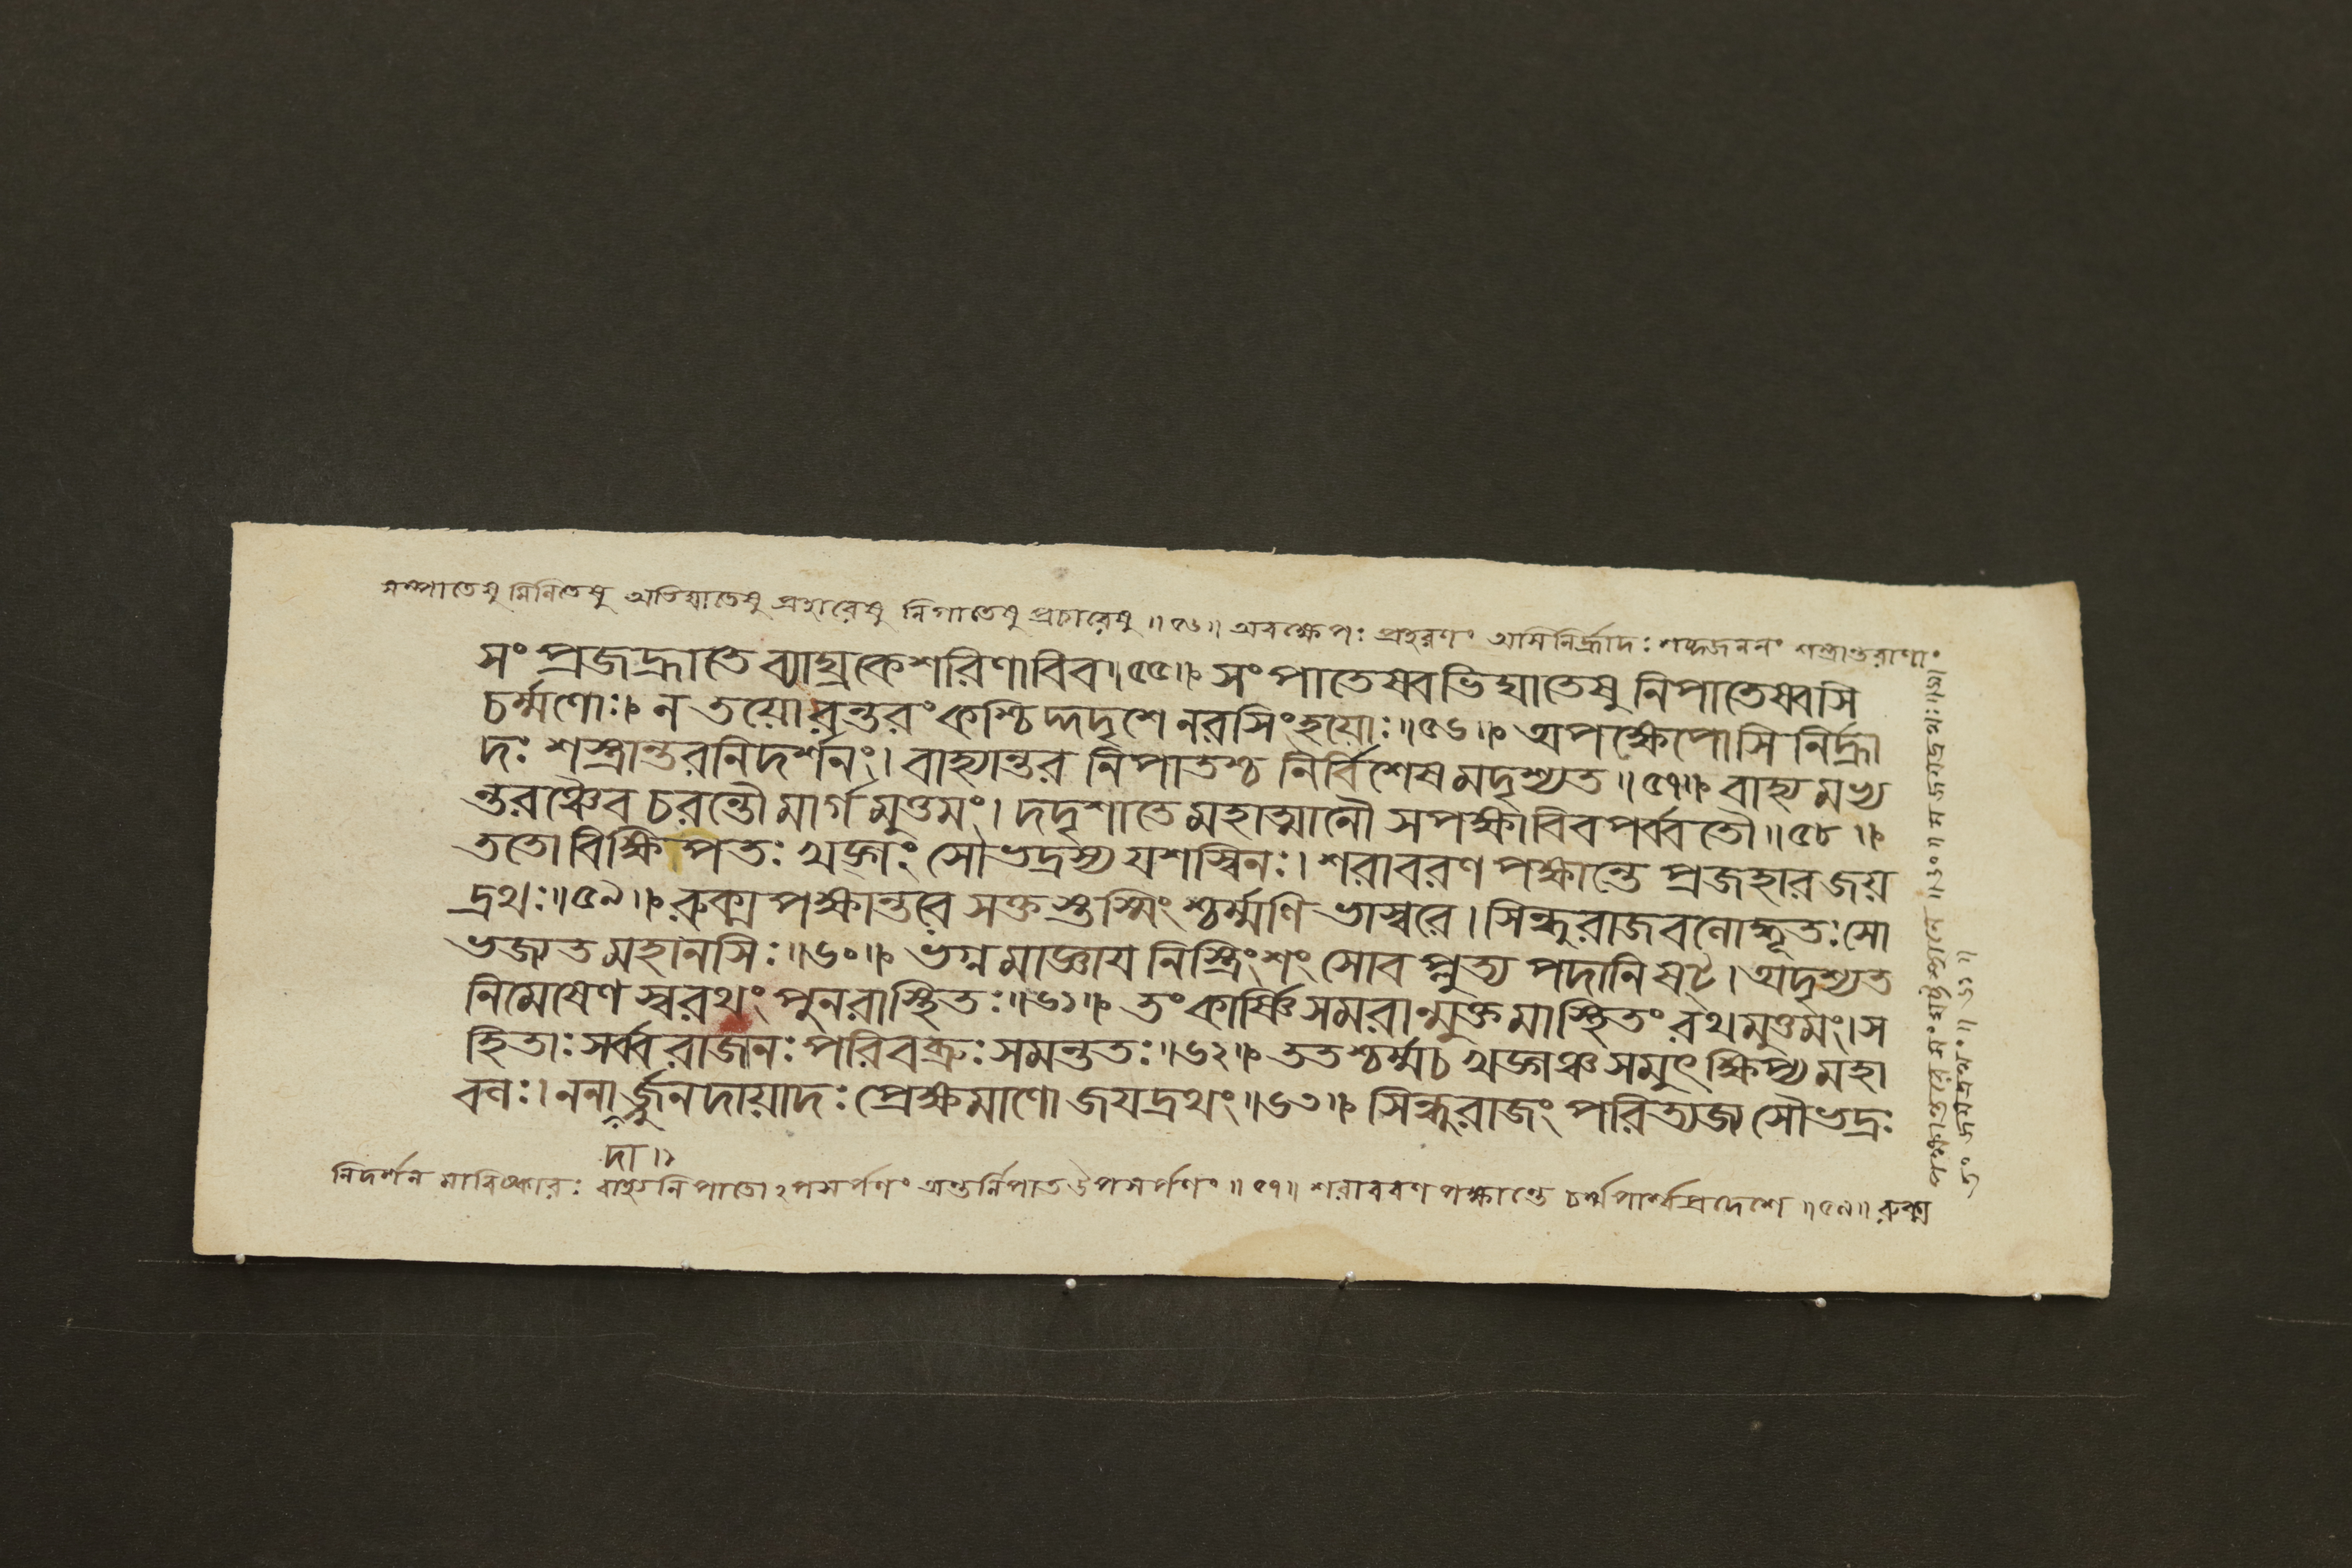 সম্পাতেষু মিনিতেষু অভিঘাতেষু প্রহারেষু নিপাতেষু প্রচারেষু॥৫৬॥ অবক্ষেপঃ প্রহরণং অসিনির্হ্রাদঃ শব্দজননং শস্ত্রান্তরাণাং
সংপ্রজহ্রাতে ব্যাঘ্রকেশরিণাবিব॥৫৫॥ সংপাতেষ্ববভিঘাতেষু নিপাতেষ্ববসি
চর্ম্মণোঃ। ন তয়োরন্তরং কশ্চিদ্দদৃশে নরসিংহয়োঃ॥৫৬॥ অপক্ষেপোসি নির্হ্রা
দঃ শস্ত্রান্তরনিদর্শনং। বাহ্যান্তর নিপাতশ্চ নির্বিশেষমদৃশ্যত॥৫৭॥ বাহ্যমভ্য
ন্তরঞ্চৈব চরন্তৌ মার্গমুত্তমং। দদৃশাতে মহাত্মানৌ সপক্ষাবিব পর্ব্বতৌ॥৫৮॥
ততো বিক্ষিপতঃ খড়্গং সৌভদ্রস্য যশস্বিনঃ। শরাবরণ পক্ষান্তে প্রজহার জয়
দ্রথঃ॥৫৯॥ রুক্মপক্ষান্তরে সক্তস্তস্মিংশ্চর্ম্মণি ভাস্বরে। সিন্ধুরাজবলোদ্ধূতঃ সো
ভজ্যত মহানসিঃ॥৬০॥ ভগ্নমাজ্ঞায নিস্ত্রিংশং সোবপ্লুত্য পদানি ষট্। অদৃশ্যত
নিমেষেণ স্বরথং পুনরাস্থিতঃ॥৬১॥ তং কার্ষ্ণিং সমরান্মুক্তমাস্থিতং রথমুত্তমং। স
হিতাঃ সর্ব্বরাজানঃ পরিবব্রুঃ সমন্ততঃ॥৬২॥ ততশ্চর্ম্ম চ খড়্গঞ্চ সমুৎক্ষিপ্য মহা
বলঃ। ননা র্জ্জুনদায়াদঃ প্রেক্ষমাণো জযদ্রথং॥৬৩॥ সিন্ধুরাজং পরিত্যজ্য সৌভদ্রঃ
দা॥
নিদর্শন মাবিষ্কারঃ বাহ্যনিপাতোঽপসর্পণং অন্তর্নিপাত উপসর্পণং॥৫৭॥ শরাবরণ পক্ষান্তে চর্ম্মপার্শ্বপ্রদেশে॥৫৯॥ রুক্ম